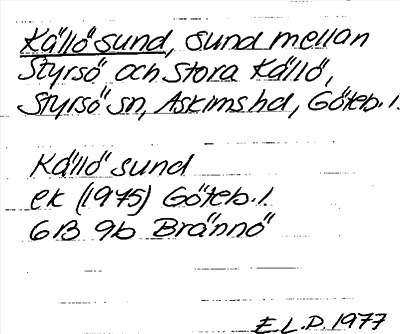 Källö sund, sund mellan
Styrsö och Stora Källö,
Styrsö sn, Askims hd, Göteb. l.
Källö sund
ek (1975) Göteb. l.
6B 9b Brännö
E.L.D. 1977